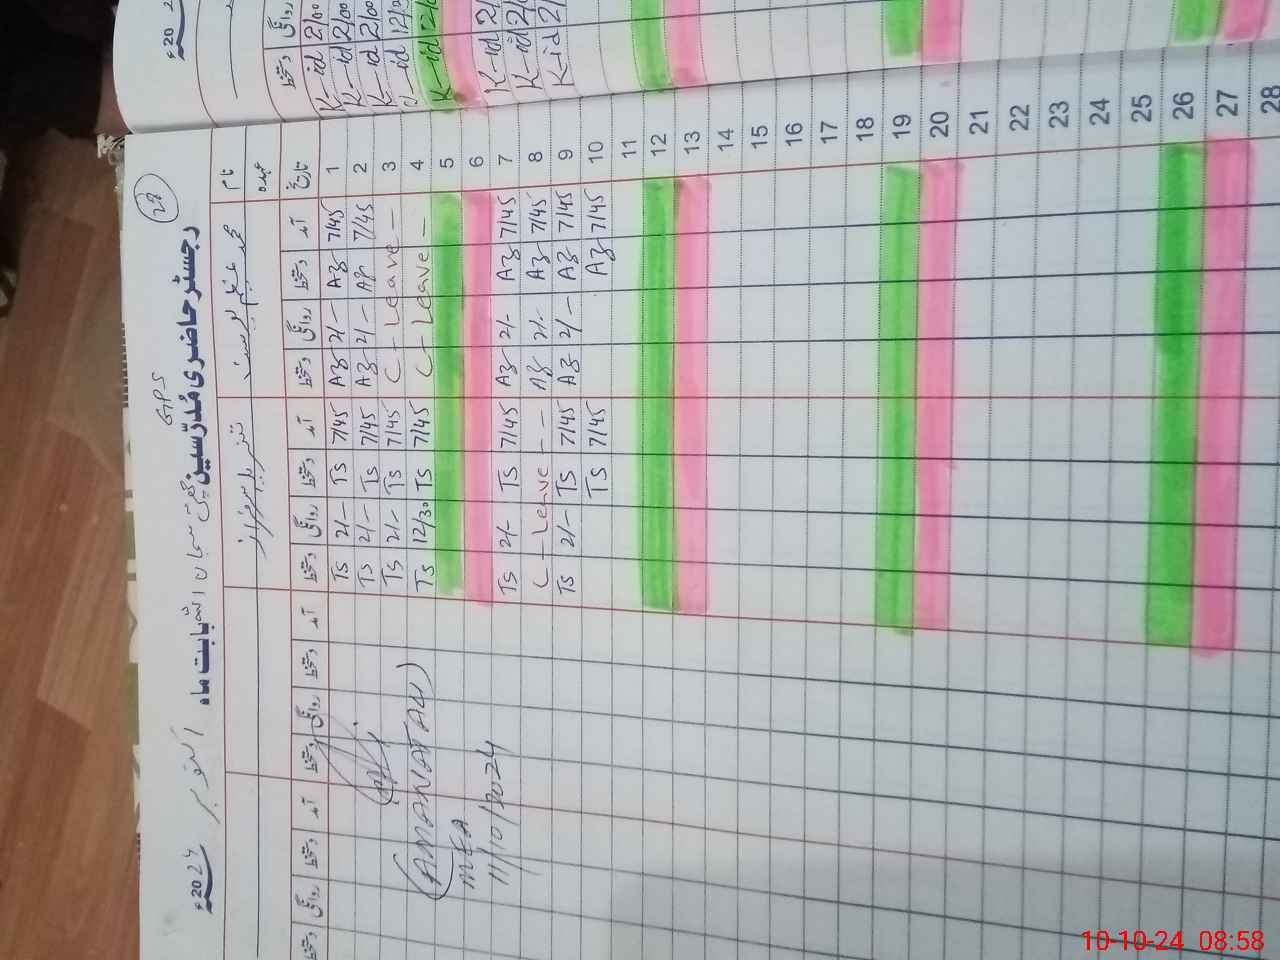 28
GPS
رجسٹر حاضری مُدرّسین
بابت ماہ اکتوبر 2024ء
نام محمد عظیم یوسف
عہدہ
تاریخ آمد دستخط روانگی دستخط آمد دستخط روانگی دستخط آمد دستخط روانگی دستخط آمد دستخط روانگی دستخط
1 7/45 Az 2/- Az 7/45 TS 2/- TS
2 7/45 Az 2/- Az 7/45 TS 2/- TS
3 C - Leave - 7/45 TS 2/- TS
4 C - Leave - 7/45 TS 12/30 TS
5
6
7 7/45 Az 2/- Az 7/45 TS 2/- TS
8 7/45 Az 2/- Az C - Leave - -
9 7/45 Az 2/- Az 7/45 TS 2/- TS
10 7/45 Az 7/45 TS
11
12
13
14
15
16
17
18
19
20
21
22
23
24
25
26
27
28
(AMANATAU)
MEA
11/10/2024
20ء
روانگی دستخط
2/00 K-id
2/00 K-id
2/00 K-id
K-id
K-id
K-id
K-id
10-10-24 08:58